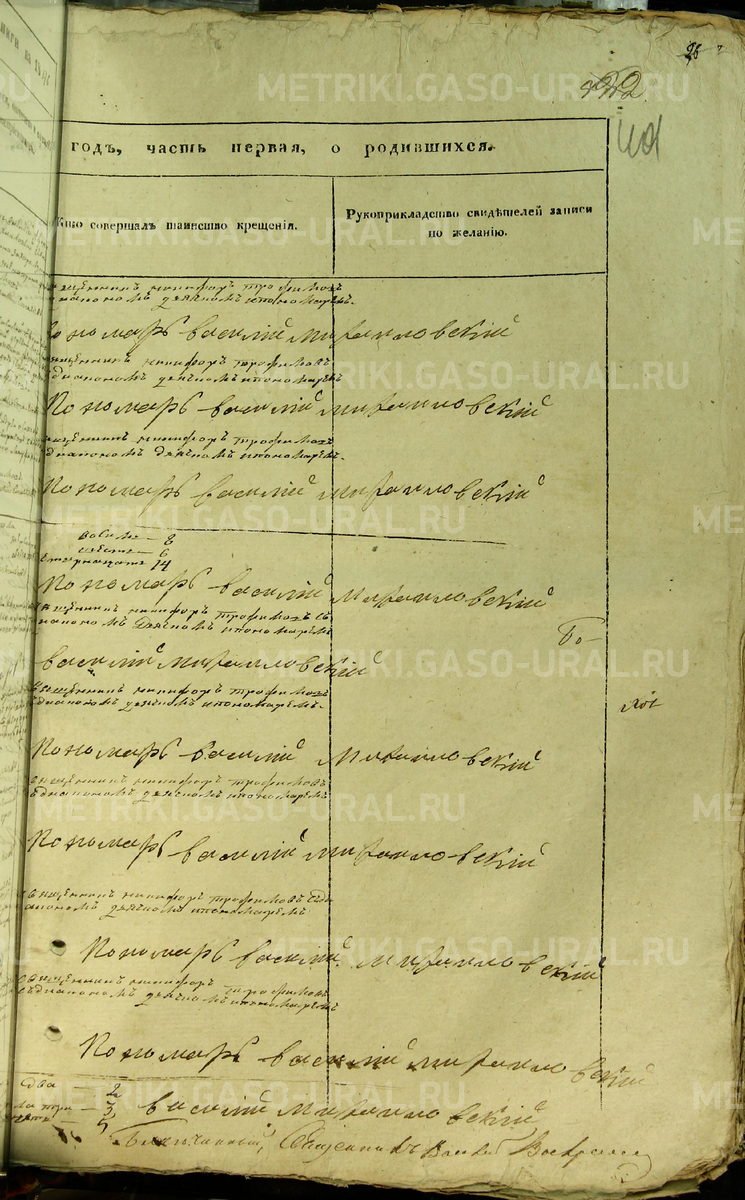 26
годъ, часть первая, о родившихся.
Кто совершалъ таинство крещенія.
Рукоприкладство свидѣтелей записи по желанію.
священникъ никифоръ трофимовъ
диакономъ дьячкомъ и пономаремъ.
Пономарь василий михаиловский
священникъ никифоръ трофимовъ
диакономъ дьячкомъ и пономаремъ
Пономарь василий михаиловский
священникъ никифоръ трофимовъ
диакономъ дьячкомъ и пономаремъ.
Пономарь василий михаиловский
8
6
14
Пономарь василий михаиловский
священникъ никифоръ трофимовъ съ
диакономъ дьячкомъ и пономаремъ
василий михаиловский
священникъ никифоръ трофимовъ
съ диакономъ дьячкомъ и пономаремъ.
Пономарь василий михаиловский
священникъ никифоръ трофимовъ
съ диакономъ дьячкомъ и пономаремъ
Пономарь василий михаиловский
священникъ никифоръ трофимовъ съ ди
акономъ дьячкомъ и пономаремъ
Пономарь василий михаиловский
священникъ никифоръ трофимовъ
съ диакономъ дьячкомъ и пономаремъ
Пономарь василий михаиловский
два 2
три 3
5
василий михаиловский
METRIKI.GASO-URAL.RU